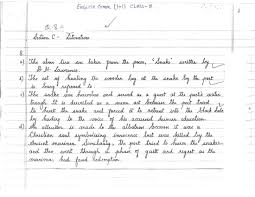 English Comm. CLASS-X
Section C - Literature
8.
a) The above lines are taken from the poem, 'Snake' written by
D. H. Lawrence.
b) The act of chucking the wooden log at the snake by the poet
is being referred to.
c) The snake was harmless and served as a guest at the poet's water
trough. It is described as a mean act because the poet tried
to hurt the snake and forced it to retreat into the black hole
by heeding to the voice of his accursed human education.
d) An allusion is made to the albatross because it was a
Christian soul symbolising innocence but was killed by the
ancient mariner. Similarly, the poet tried to harm the snake
and then went through a phase of guilt and regret as the
mariner had and redemption.